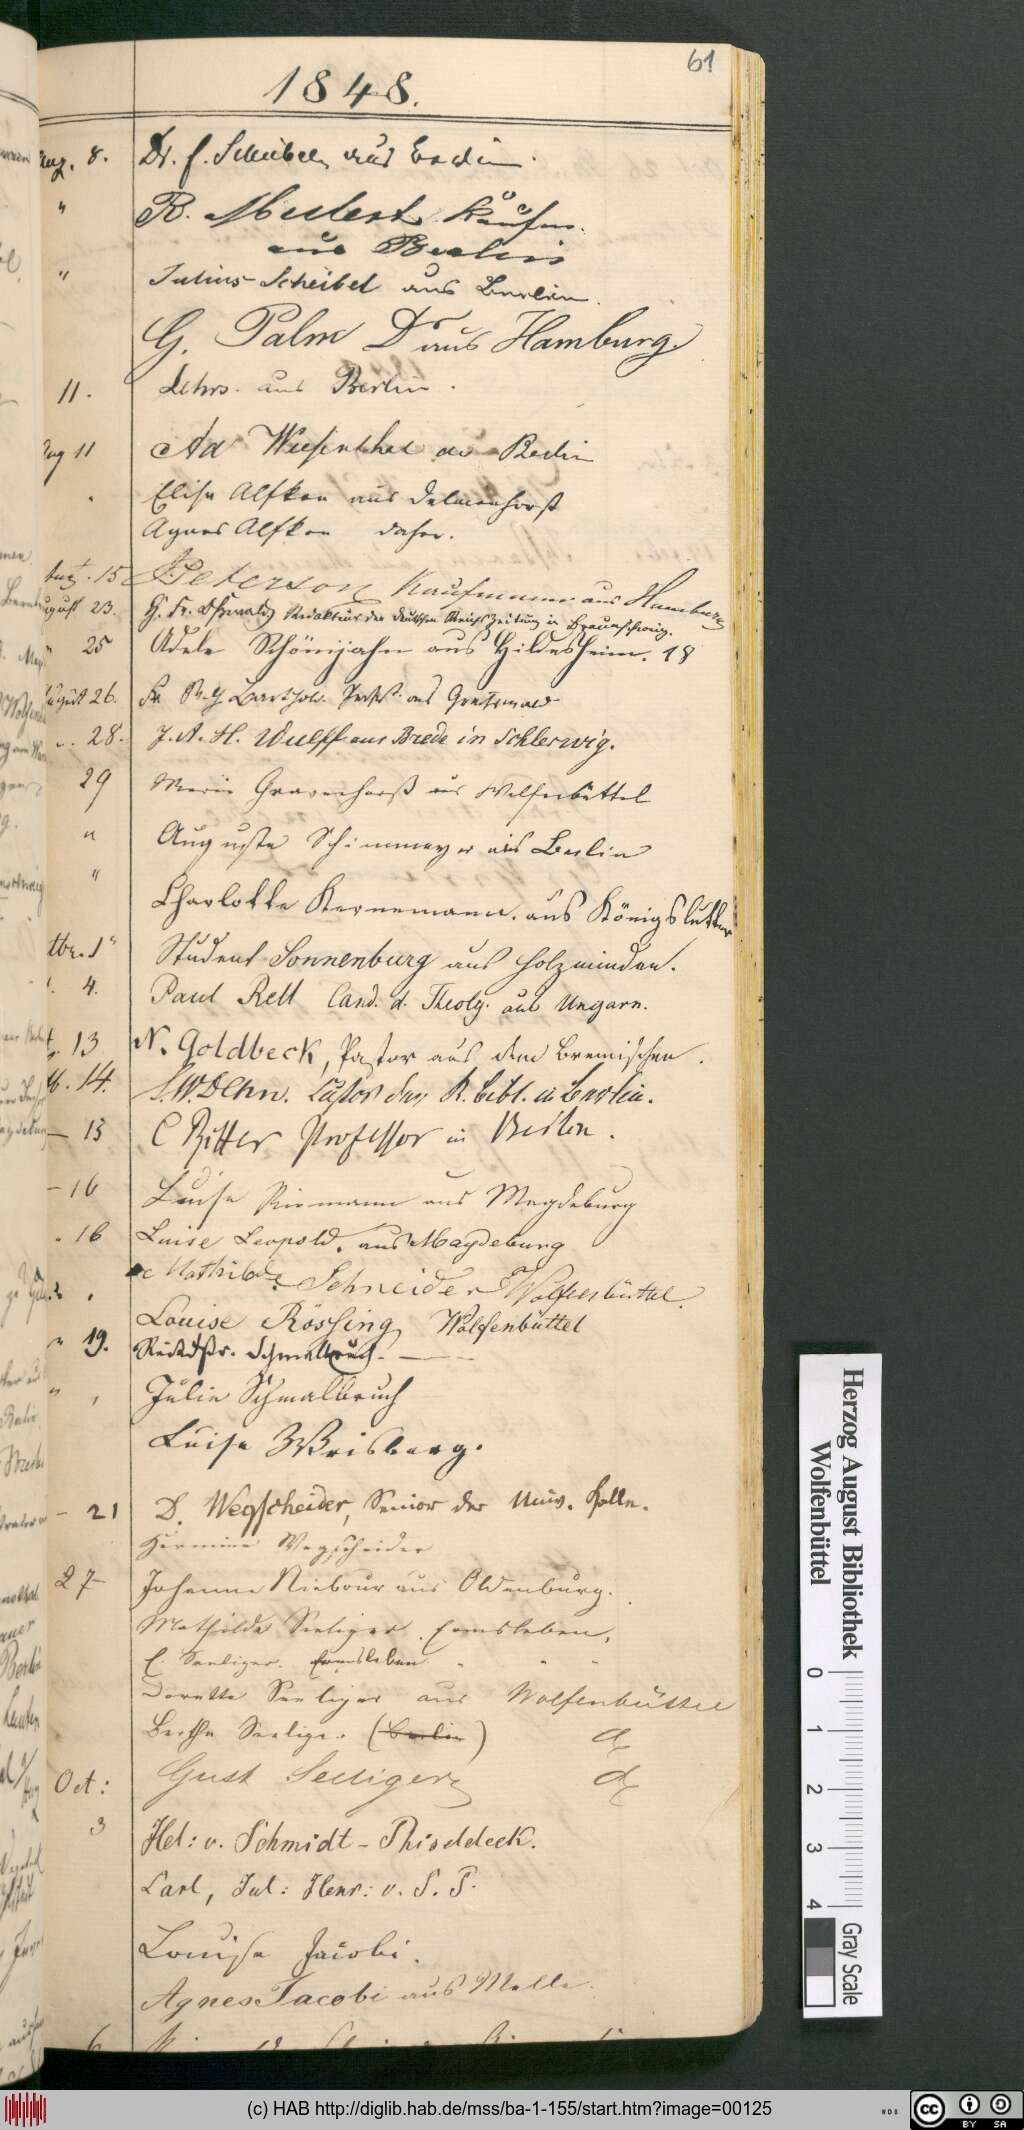 61
1848.
Aug. 8. Dr. f. aus Berlin.
" R. Kaufm.
aus Berlin
" Julius Scheibel aus Berlin.
G. Palm Dr aus Hamburg.
11. Lehrs. aus Berlin.
Aug 11 Ad Wiesenthal aus Berlin
Elise Alfken aus Delmenhorst
Agnes Alfken daher.
Aug. 15 Peterson Kaufmann aus Hamburg
August 23. H. Fr. Oßwald Redakteur der deutschen Reichszeitung in Braunschweig.
25 Adele Schönijahn aus Hildesheim. 18
August 26. Fr. aus Greifswald
28. J. A. H. Wulff aus Brede in Schleswig.
29 Marie Gravenhorst aus Wolfenbüttel
" Auguste Schimmeyer aus Berlin
" Charlotte Kernemann. aus Königslutter
tbr. 1 Student Sonnenburg aus Holzminden.
4. Paul Rell Cand. d. Theolg. aus Ungarn.
13 N. Goldbeck, Pastor aus dem Bremischen.
14. S. W. Dehn. Custos der K. Bibl. in Berlin.
— 15 C Ritter Professor in Berlin.
— 16 Luise aus Magdeburg
" 16 Luise Leopold. aus Magdeburg
Mathilde Schneider Wolfenbüttel.
Louise Rössing Wolfenbüttel
" 19. Schmalbruch.
Julie Schmalbruch
Luise Wrisberg.
— 21 D. Wegscheider, Senior der Univ. Halle.
Hermine Wegscheider
27 Johanne Niebour aus Oldenburg.
Mathilde Seeliger. Ermsleben.
E. Seeliger. Ermsleben " " "
Dorette Seeliger aus Wolfenbüttel
Berthe Seeliger. (Berlin) d
Oct: Gust Seeliger d
3 Hel: v. Schmidt-Phiseldeck.
Carl, Jul: Henr: v. S. P.
Louise Jacobi.
Agnes Jacobi aus Melle.
6
Herzog August Bibliothek
Wolfenbüttel
0 1 2 3 4
Gray Scale
(c) HAB http://diglib.hab.de/mss/ba-1-155/start.htm?image=00125
WDB
cc BY SA